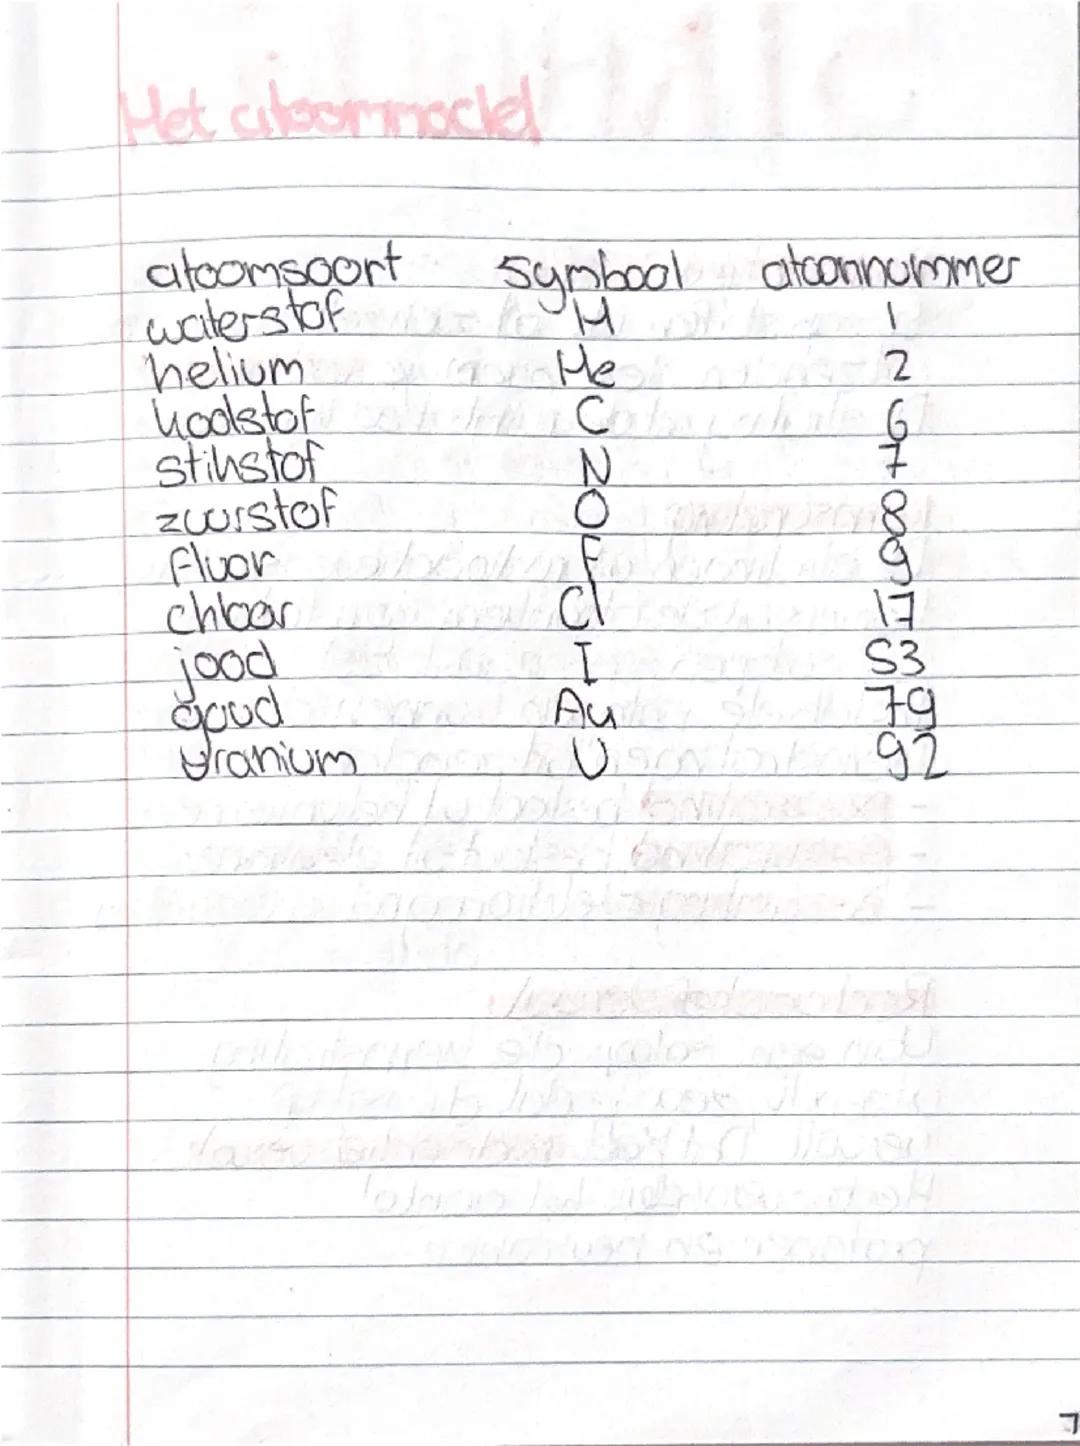 Het atoommodel
atoomsoort symbool atoomnummer
waterstof H 1
helium He 2
koolstof C 6
stikstof N 7
zuurstof O 8
fluor F 9
chloor Cl 17
jood I 53
goud Au 79
uranium U 92
7